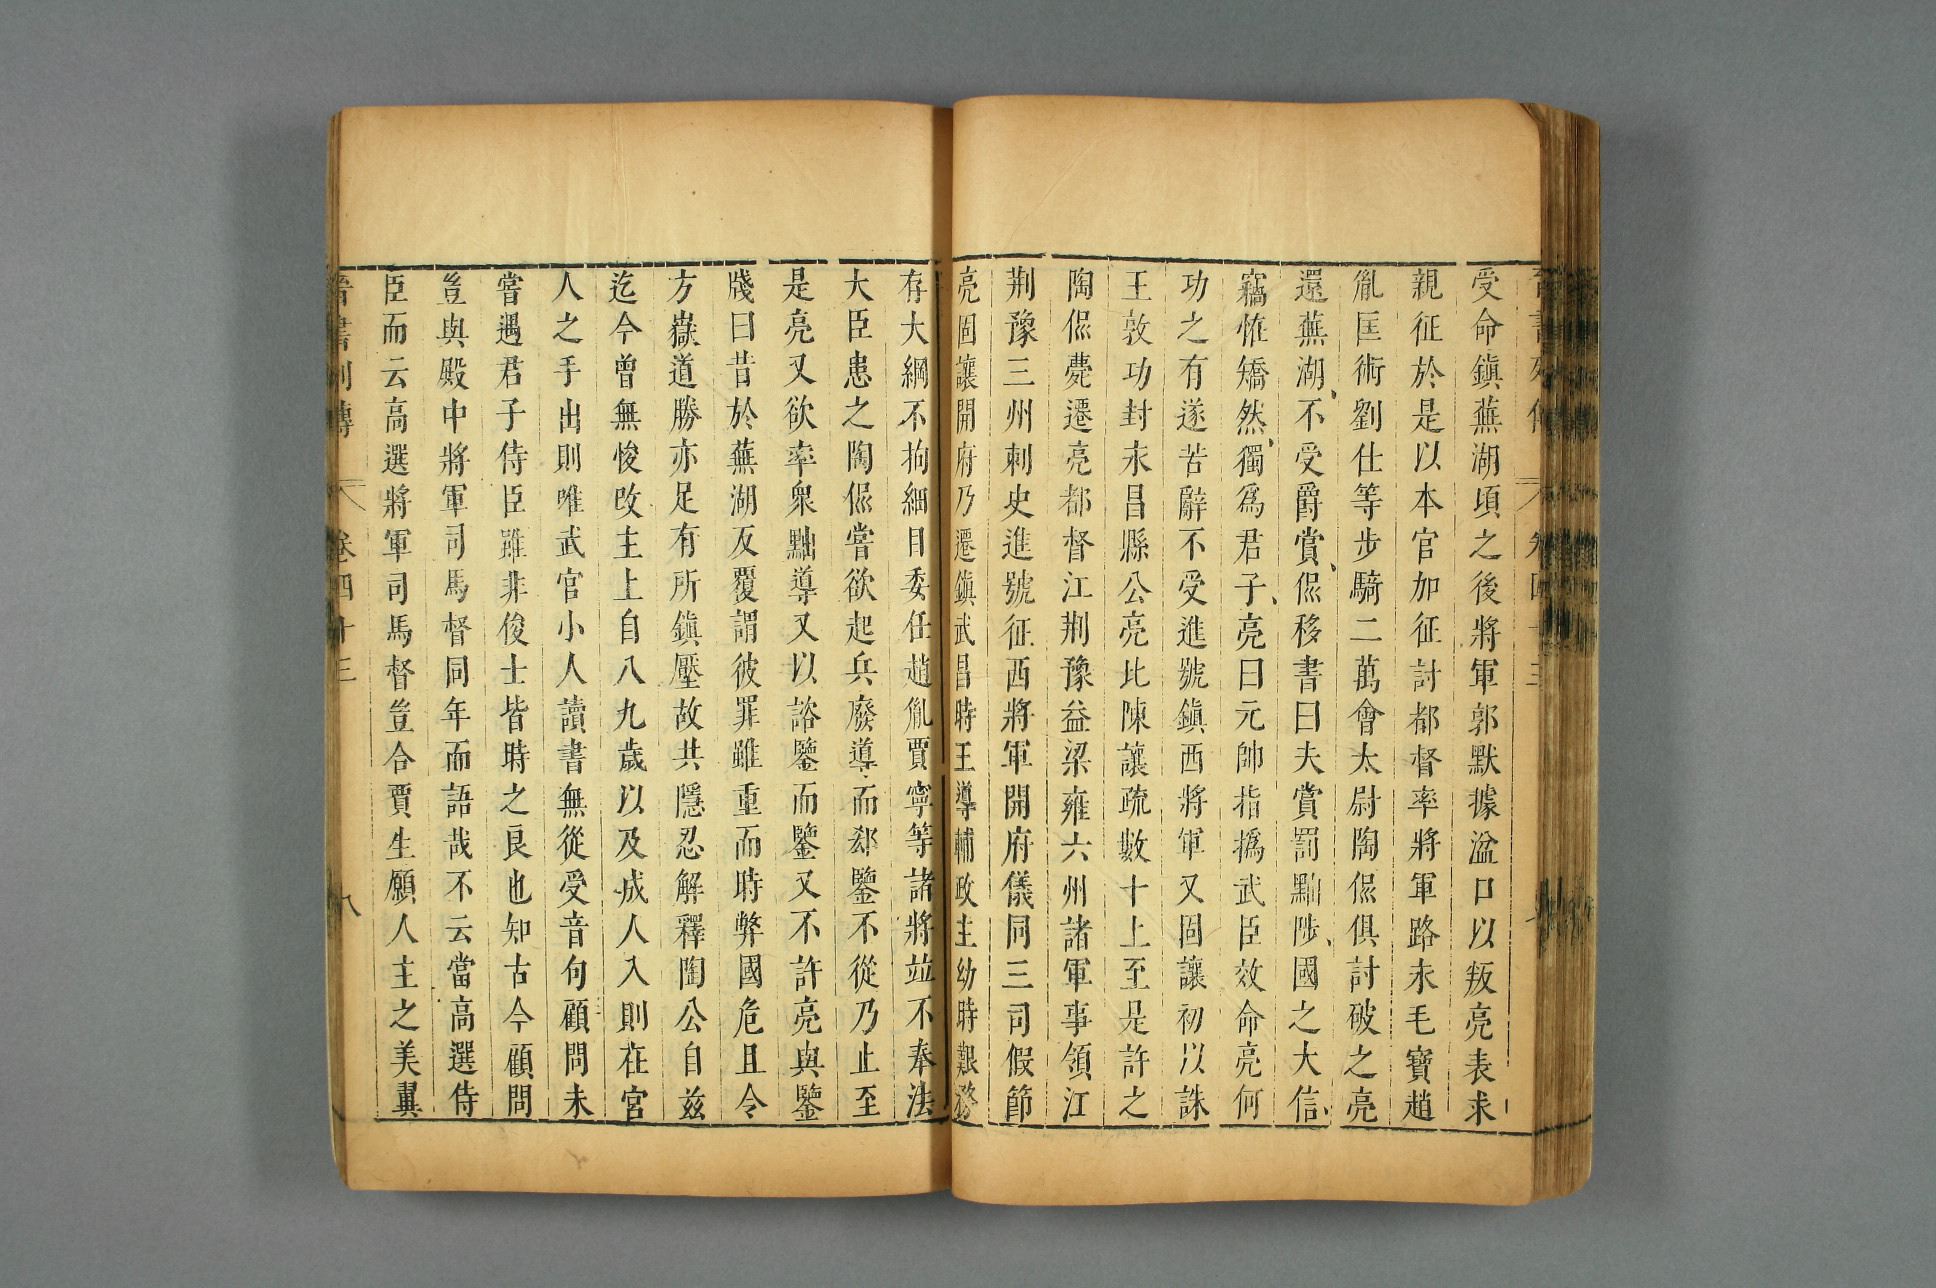 受命鎮蕪湖頃之後將軍郭默據湓口以叛亮表求
親征於是以本官加征討都督率將軍路永毛寶趙
胤匡術劉仕等步騎二萬會太尉陶侃俱討破之亮
還蕪湖不受爵賞侃移書曰夫賞罰黜陟國之大信
竊恠矯然獨爲君子亮曰元帥指撝武臣效命亮何
功之有遂苦辭不受進號鎮西將軍又固讓初以誅
王敦功封永昌縣公亮比陳讓疏數十上至是許之
陶侃薨遷亮都督江荆豫益梁雍六州諸軍事領江
荆豫三州刺史進號征西將軍開府儀同三司假節
亮固讓開府乃遷鎮武昌時王導輔政主幼時艱務
存大綱不拘細目委任趙胤賈寧等諸將並不奉法
大臣患之陶侃嘗欲起兵廢導而郄鑒不從乃止至
是亮又欲率衆黜導又以諮鑒而鑒又不許亮與鑒
牋曰昔於蕪湖反覆謂彼罪雖重而時弊國危且令
方嶽道勝亦足有所鎮壓故共隱忍解釋陶公自兹
迄今曾無悛改主上自八九歲以及成人入則在宮
人之手出則唯武官小人讀書無從受音句顧問未
嘗遇君子侍臣雖非俊士皆時之良也知古今顧問
豈與殿中將軍司馬督同年而語哉不云當高選侍
臣而云高選將軍司馬督豈合賈生願人主之美翼
晉書列傳 卷四十三 八